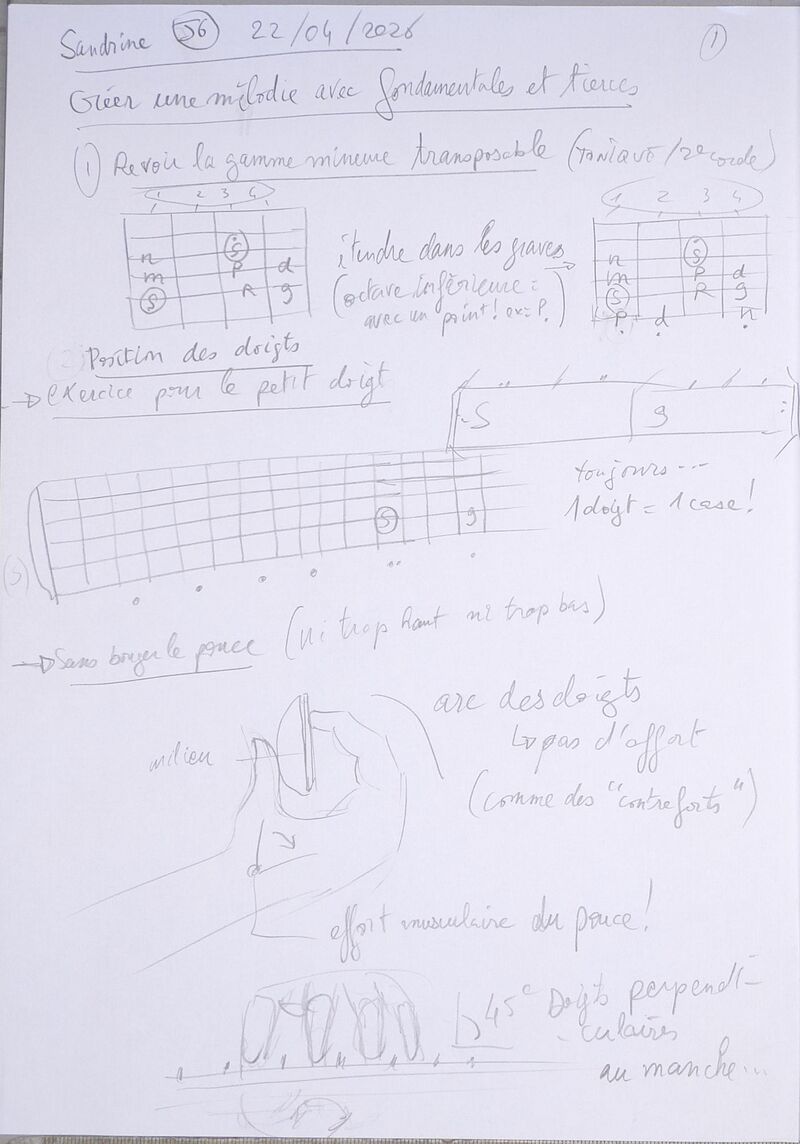 Sandrine 56 22/04/2026
1
Créer une mélodie avec fondamentales et tierces
1 Revoir la gamme mineure transposable (TONIQUE / 2e corde)
1 2 3 4
n S
m P d
S R g
étendre dans les graves
(octave inférieure =
avec un point! ex = P.)
1 2 3 4
n S
m P d
S R g
P d n
2 Position des doigts
→ Exercice pour le petit doigt
S g
toujours ...
1 doigt = 1 case!
S g
(5)
→ Sans bouger le pouce (ni trop haut ni trop bas)
arc des doigts
↳ pas d'effort
(comme des "contreforts")
milieu
effort musculaire du pouce!
45° Doigts perpendi-
culaires
au manche...